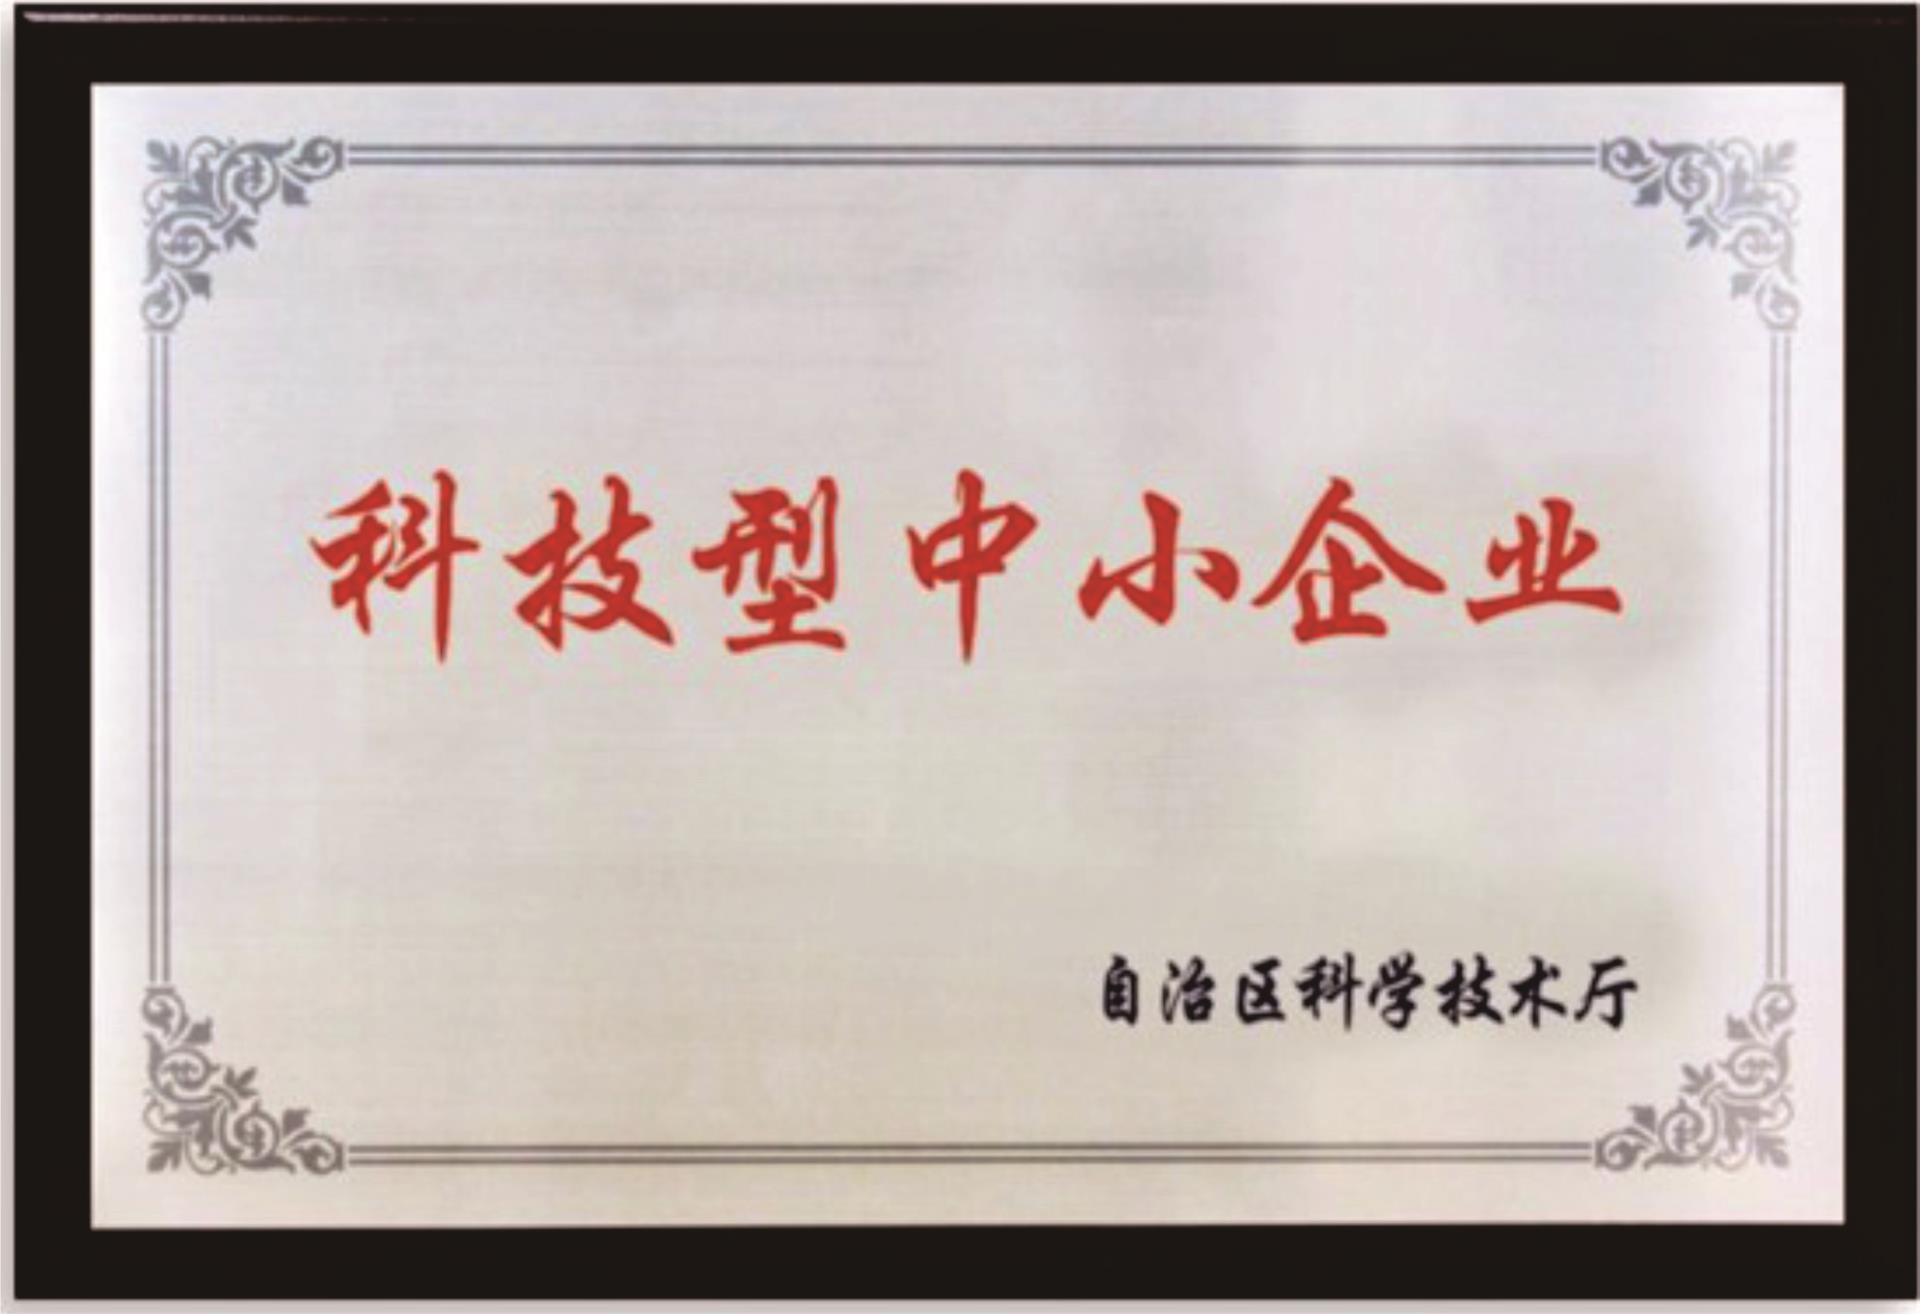 科技型中小企业
自治区科学技术厅